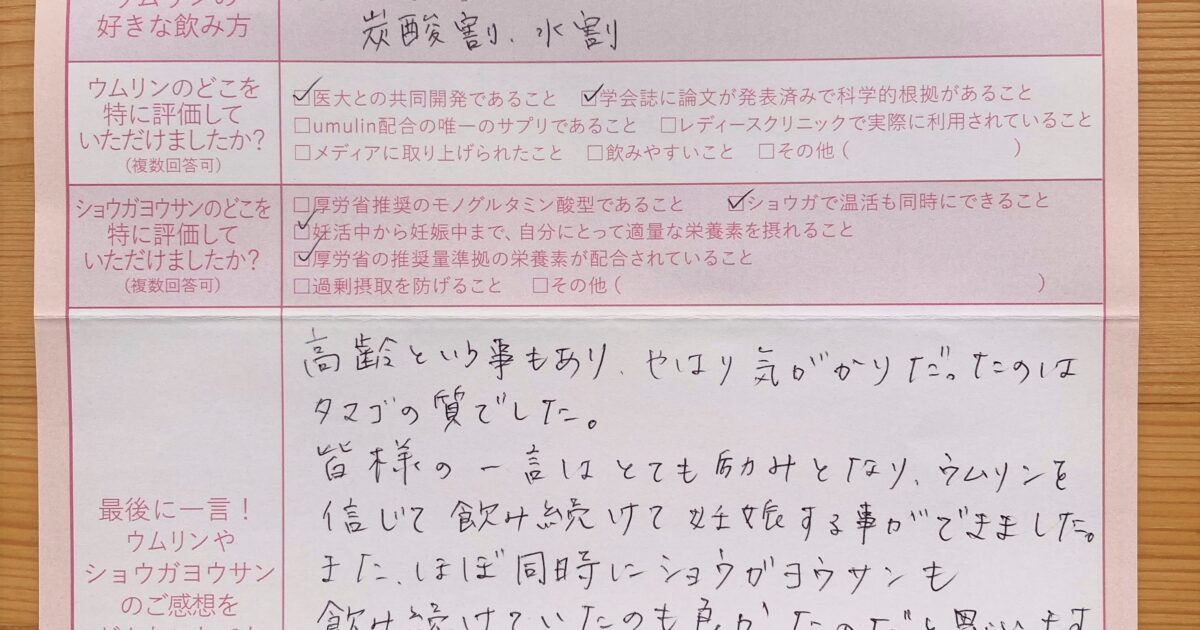 好きな飲み方
炭酸割、水割
ウムリンのどこを
特に評価して
いただけましたか?
(複数回答可)
☑医大との共同開発であること ☑学会誌に論文が発表済みで科学的根拠があること
□umulin配合の唯一のサプリであること □レディースクリニックで実際に利用されていること
□メディアに取り上げられたこと □飲みやすいこと □その他 ( )
ショウガヨウサンのどこを
特に評価して
いただけましたか?
(複数回答可)
□厚労省推奨のモノグルタミン酸型であること ☑ショウガで温活も同時にできること
☑妊活中から妊娠中まで、自分にとって適量な栄養素を摂れること
☑厚労省の推奨量準拠の栄養素が配合されていること
□過剰摂取を防げること □その他 ( )
最後に一言!
ウムリンや
ショウガヨウサン
のご感想を
高齢という事もあり、やはり気がかりだったのは
タマゴの質でした。
皆様の一言はとても励みとなり、ウムリンを
信じて飲み続けて妊娠する事ができました。
また、ほぼ同時にショウガヨウサンも
飲み続けていたのも良かったのだと思います